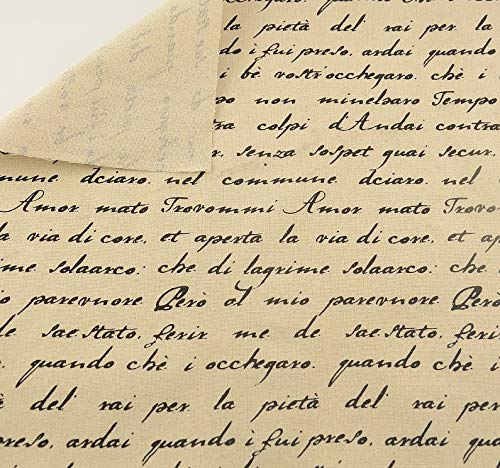 chegaro. chè i be vostr'
la pietà del' rai per la
i fui preso, ardai quando i fui
i bè vostr'occhegaro. chè i
non minelbaro Tempo
colpi d'Andai contra
senza sospet quai secur.
mune dciaro. nel commune. dciaro. nel
Amor mato Trovommi Amor mato Trovo
la via di core, et aperta la via di core, et aper
ime solaarco: che di lagrime solaarco: che
io parevnore Però al mio parevnore. Però
de sae stato. ferir me de sae stato. ferir
quando chè i occhegaro. quando chè i
tà del' rai per la pietà del' rai per la
preso, ardai quando i fui preso, ardai qua